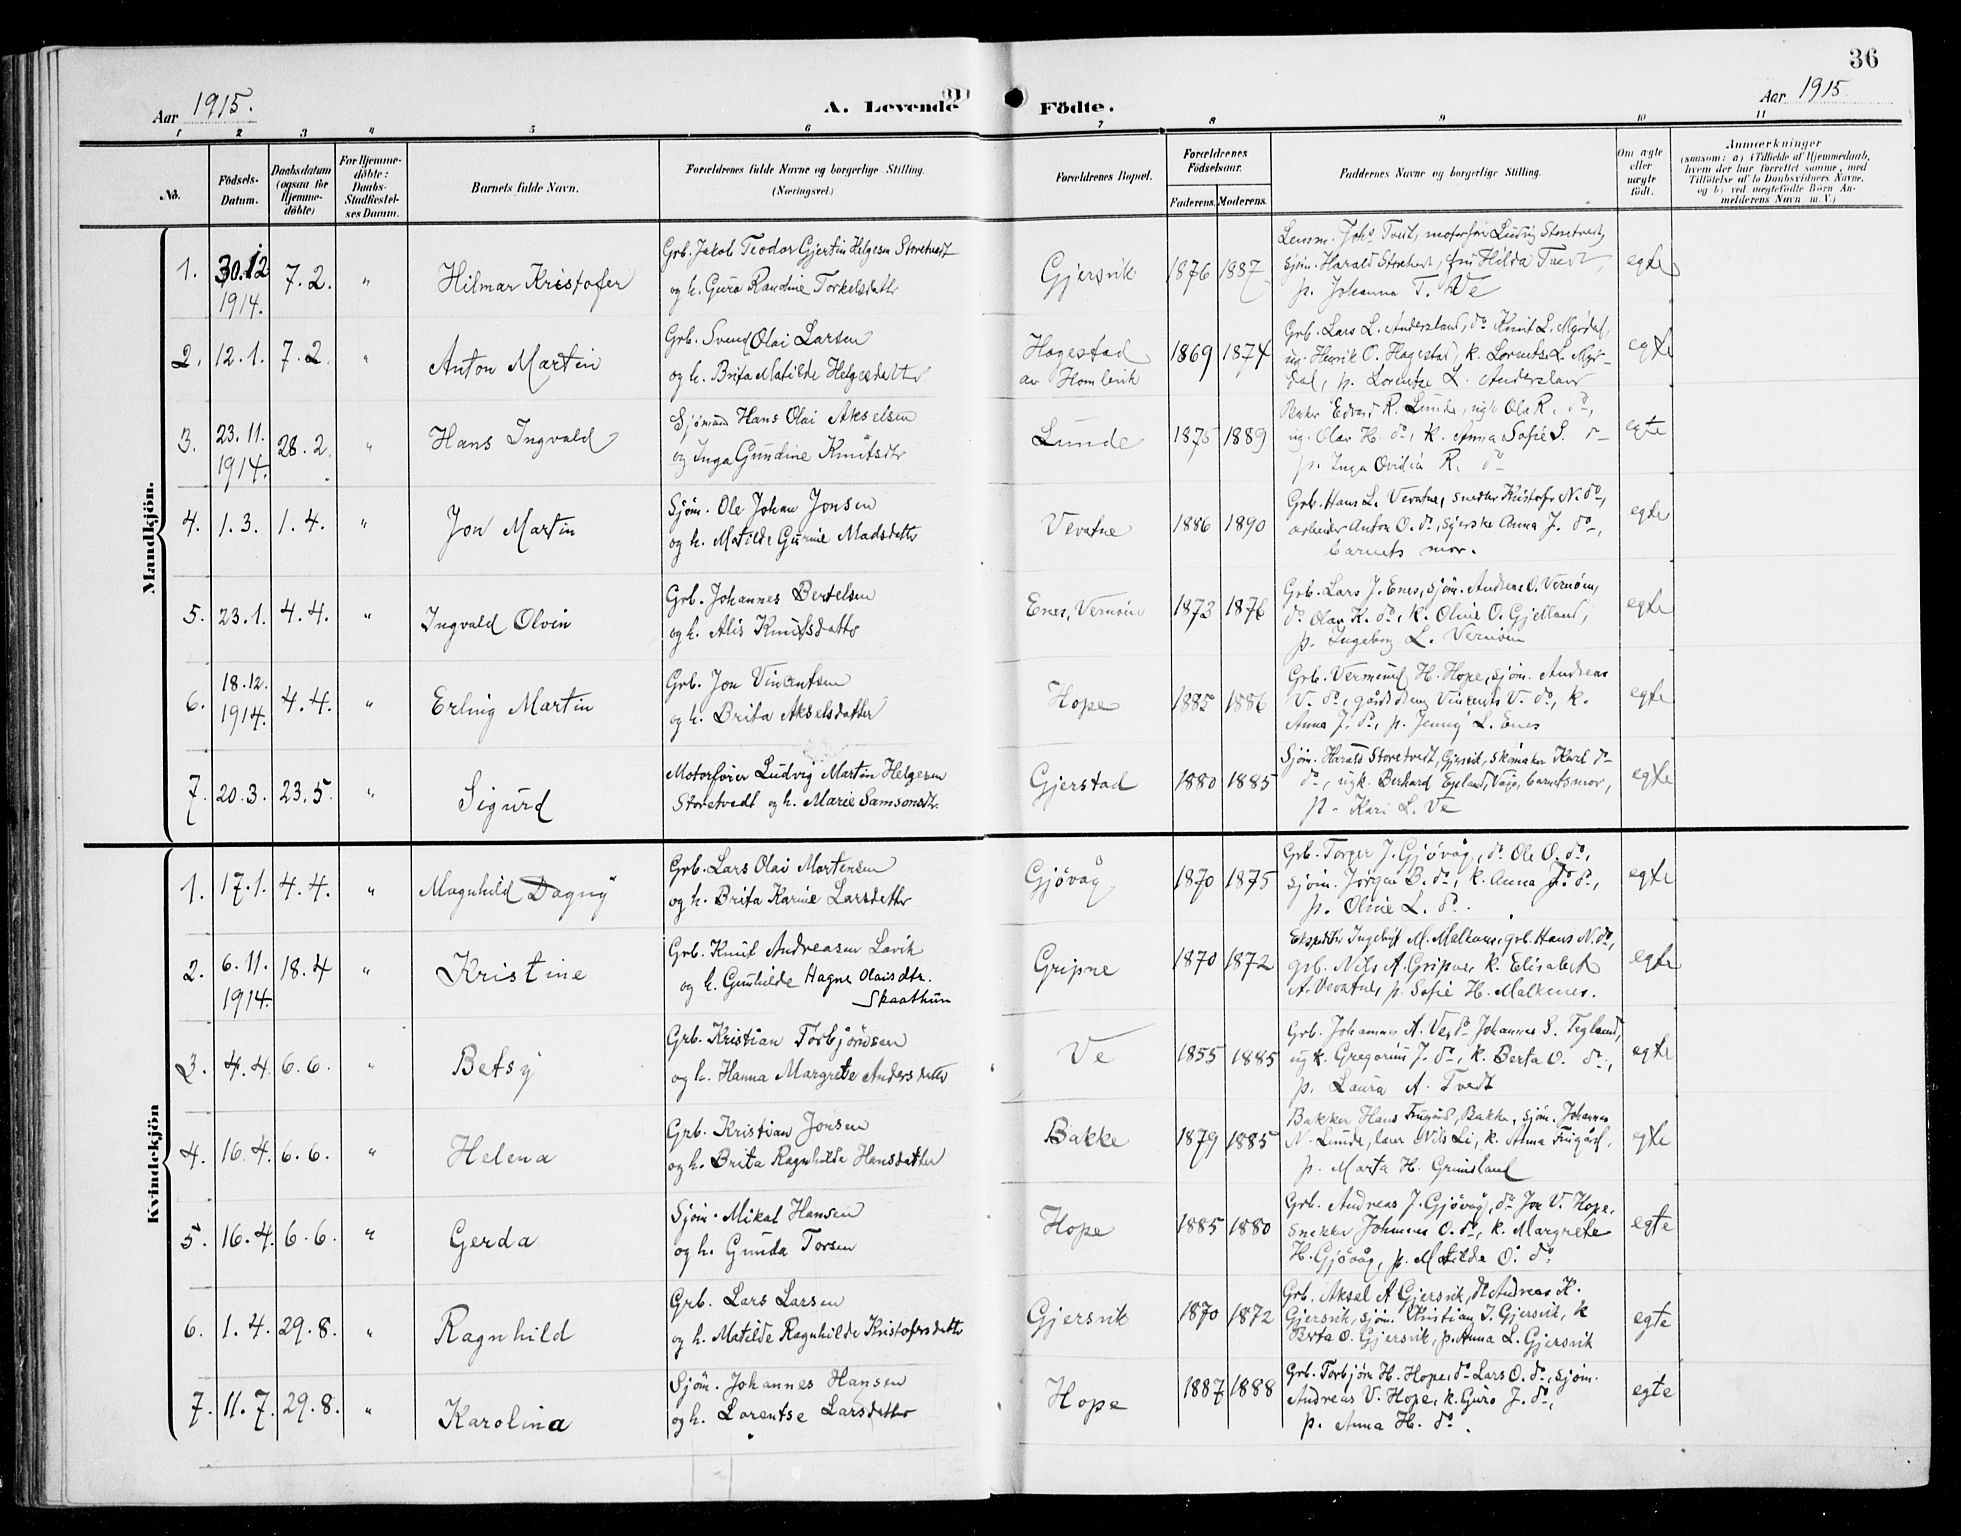 36
Aar 1915.
A. Levende Födte.
Aar 1915
1 2 3 4 5 6 7 8 9 10 11
No.
Födsels-Datum.
Daabsdatum (ogsaa for Hjemmedöbte)
For Hjemmedöbte: Daabs-Stadfæstelses Datum.
Barnets fulde Navn.
Forældrenes fulde Navne og borgerlige Stilling. (Næringsvei.)
Forældrenes Bopæl.
Forældrenes Födselsaar.
Faderens. Moderens.
Faddernes Navne og borgerlige Stilling.
Om ægte eller uægte født.
Anmærkninger
(saasom: a) i Tilfælde af Hjemmedaab, hvem der har forrettet samme, med Tilföielse af to Daabsvidners Navne, og b) ved uægtefödte Börn Anmelderens Navn m. V.)
Mandkjön.
1. 30.12 1914. 7.2. " Hilmar Kristofer
Grb. Jakob Teodor Gjertin Helgesen Storetvedt
og h. Guro Randine Torkelsdatter
Gjersvik 1876 1887
Lensm. Johs Tvedt, motorfører Ludvig Storetvedt,
sjøm. Harald Storetvedt, fru Hilda Tvedt,
p. Johanna T. Ve
egte
2. 12.1. 7.2. " Anton Martin
Grb. Svend Olai Larsen
og h. Brita Matilde Helgesdatter
Hagestad
av Homlevik 1869 1874
Grb. Lars L. Andersland, do Knut L. Myrdal,
ug. Henrik O. Hagestad, k. Lorentse L. Myrdal,
p. Lorentse L. Andersland
egte
3. 23.11. 1914. 28.2. " Hans Ingvald
Sjømand Hans Olai Akselsen
og Inga Gundine Knutsdtr
Lunde 1875 1889
Edvard R. Lunde, ugk Ole R. do,
ug. Olav H. do, k. Anna Sofie S. do
p. Inga Ovidia R. do
egte
4. 1.3. 1.4. " Jon Martin
Sjøm. Ole Johan Jonsen
og h. Matilde Gurine Madsdatter
Vevatne 1886 1890
Grb. Hans L. Vevatne, snedker Kristofer N. do,
arbeider Anton O. do, syerske Anna J. do,
barnets mor.
egte
5. 23.1. 4.4. " Ingvald Olvin
Grb. Johannes Bertelsen
og h. Alis Knutsdatter
Enes, Vernøin 1873 1876
Grb. Lars J. Enes, sjøm. Andreas O. Vernøin,
do Olav K. do, k. Oline O. Gjelland,
p. Ingeborg L. Vernøin
egte
6. 18.12. 1914. 4.4. " Erling Martin
Grb. Jon Vincentsen
og h. Brita Akselsdatter
Hope 1885 1886
Grb. Vermund H. Hope, sjøm. Andreas
V. do, gårddreng Vincents V. do, k.
Anna J. do, p. Jenny L. Enes
egte
7. 20.3. 23.5. " Sigurd
Motorfører Ludvig Martin Helgesen
Storetvedt og h. Marie Samsonsdtr.
Gjerstad 1880 1885
Sjøm. Harald Storetvedt, Gjersvik, skomaker Karl do
do, ugk. Berhard Epland, Våge, barnets mor,
p. Kari L. Ve
egte
Kvindekjön
1. 17.1. 4.4. " Magnhild Dagny
Grb. Lars Olai Mortensen
og h. Brita Karine Larsdatter
Gjövåg 1870 1875
Grb. Torger J. Gjövåg, do Ole O. do,
sjøm. Jørgen B. do, k. Anna J. do,
p. Oline L. do.
egte
2. 6.11. 1914. 18.4 " Kristine
Grb. Knut Andreasen Lavik
og h. Gunhilde Hagne Olaisdtr.
Skaathun
Gripne 1870 1872
Ekspeditør Ingebrigt M. Malkenes, grb. Hans N. do,
grb. Nils A. Gripne, k. Elisabeth
A. Vevatne, p. Sofie H. Malkenes.
egte
3. 4.4. 6.6. " Betsy
Grb. Kristian Torbjørnsen
og h. Hanna Margrete Andersdatter
Ve 1855 1885
Grb. Johannes A. Ve, do Johannes S. Tegland,
ugk. Gregorius J. do, k. Berta O. do,
p. Laura A. Tvedt
egte
4. 16.4. 6.6. " Helena
Grb. Kristian Jonsen
og h. Brita Ragnhilde Hansdatter
Bakke 1879 1885
Bakker Hans Frugård, Bakke, sjøm. Johannes
N. Lunde, lærer Nils Li, k. Anna Frugård,
p. Marta H. Grimsland
egte
5. 16.4. 6.6. " Gerda
Sjøm. Mikal Hansen
og h. Gunda Torsen
Hope 1885 1880
Grb. Andreas J. Gjövåg, do Jon V. Hope,
snekker Johannes O. do, k. Margrete
H. Gjövåg, p. Matilde O. do
egte
6. 1.4. 29.8. " Ragnhild
Grb. Lars Larsen
og h. Matilde Ragnhilde Kristofersdatter
Gjersvik 1870 1872
Grb. Aksel A Gjersvik, do Andreas K.
Gjersvik, sjøm. Kristian I. Gjersvik, k
Berta O. Gjersvik, p. Anna L. Gjersvik
egte
7. 11.7. 29.8. " Karolina
Sjøm. Johannes Hansen
og h. Lorentse Larsdatter
Hope 1887 1888
Grb. Torbjørn H. Hope, do Lars O. do, sjøm.
Andreas V. Hope, k. Guro J. do,
p. Anna H. do.
egte